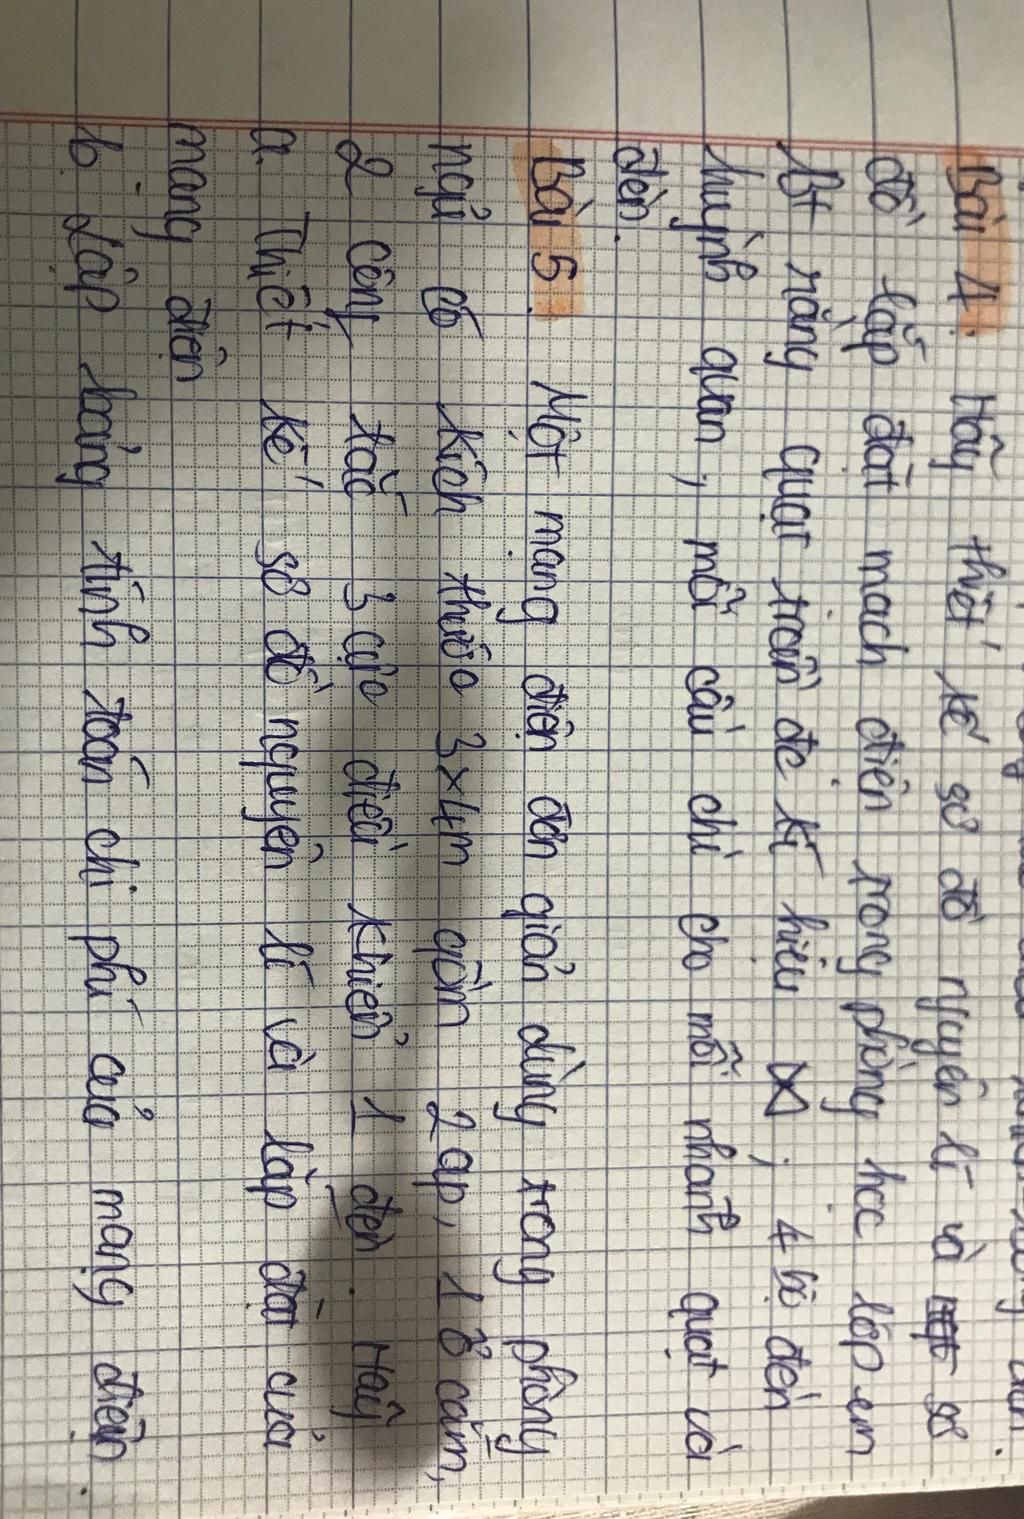 Bài 4. Hãy thiết kế sơ đồ nguyên lí và sơ
đồ lắp đặt mạch điện trong phòng học lớp em
Bt rằng quạt trần đc kí hiệu ⋈; 4 bộ đèn
huỳnh quan, mỗi cầu chì cho mỗi nhánh quạt và
đèn.
Bài 5. Một mạng điện đơn giản dùng trong phòng
ngủ có kích thước 3x4m gồm 2 ap, 1 ổ cắm,
2 công tắc 3 cực điều khiển 1 đèn. Hãy
a. Thiết kế sơ đồ nguyên lí và lắp đặt của
mạng điện
b. Lập bảng tính toán chi phí của mạng điện.